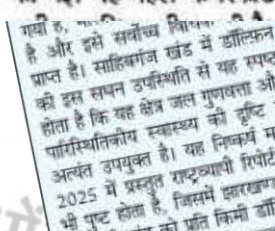 गया है,
है और इसे सर्वोच्च
प्राप्त है। साहिबगंज खंड में डॉल्फिन
की इस सघन उपस्थिति से यह स्पष्ट
होता है कि यह क्षेत्र जल गुणवत्ता औ
पारिस्थितिकीय स्वास्थ्य की दृष्टि
अत्यंत उपयुक्त है। यह निष्कर्ष म
2025 में प्रस्तुत राष्ट्रव्यापी रिपोर्ट
भी पुष्ट होता है, जिसमें झारखण्ड
को प्रति किमी डॉ